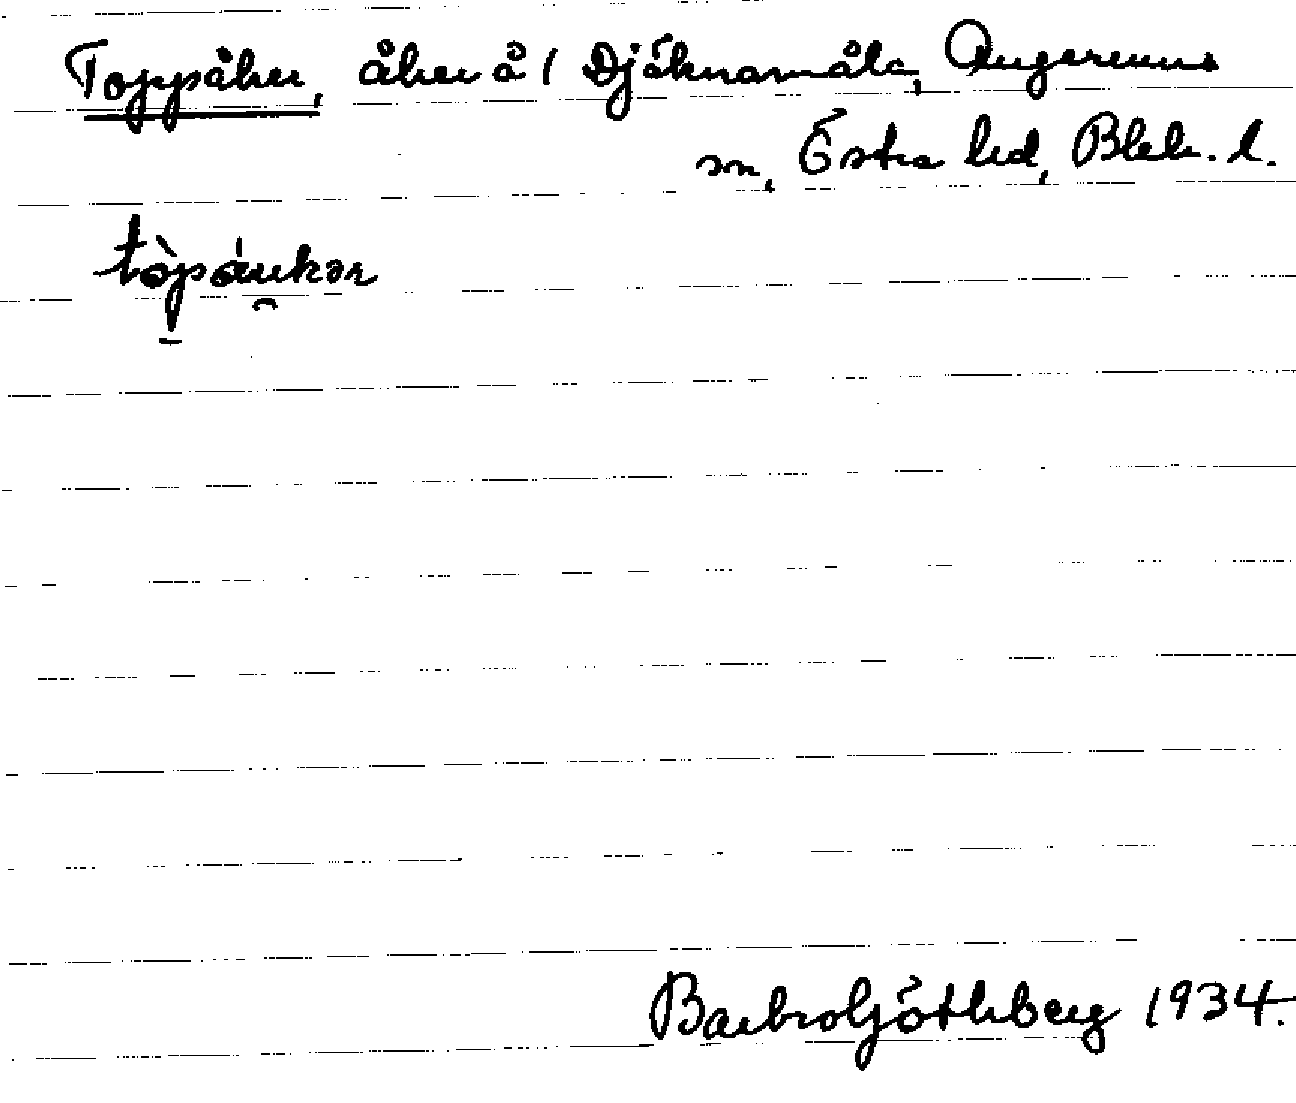 Toppåker, åker å 1 Djäknamåla, Augerums
sn, Östra hd, Blek. l.
tòpáukər
Barbro Göthberg 1934.